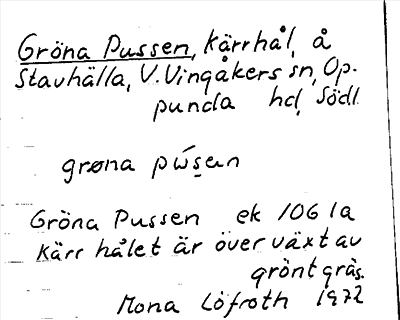 Gröna Pussen, Kärrhål, å
Stavhälla, V. Vingåkers sn, Op-
punda hd, Södl.
grøna pẃsen
Gröna Pussen ek 1061a
Kärrhålet är överväxt av
grönt gräs.
Mona Löfroth 1972